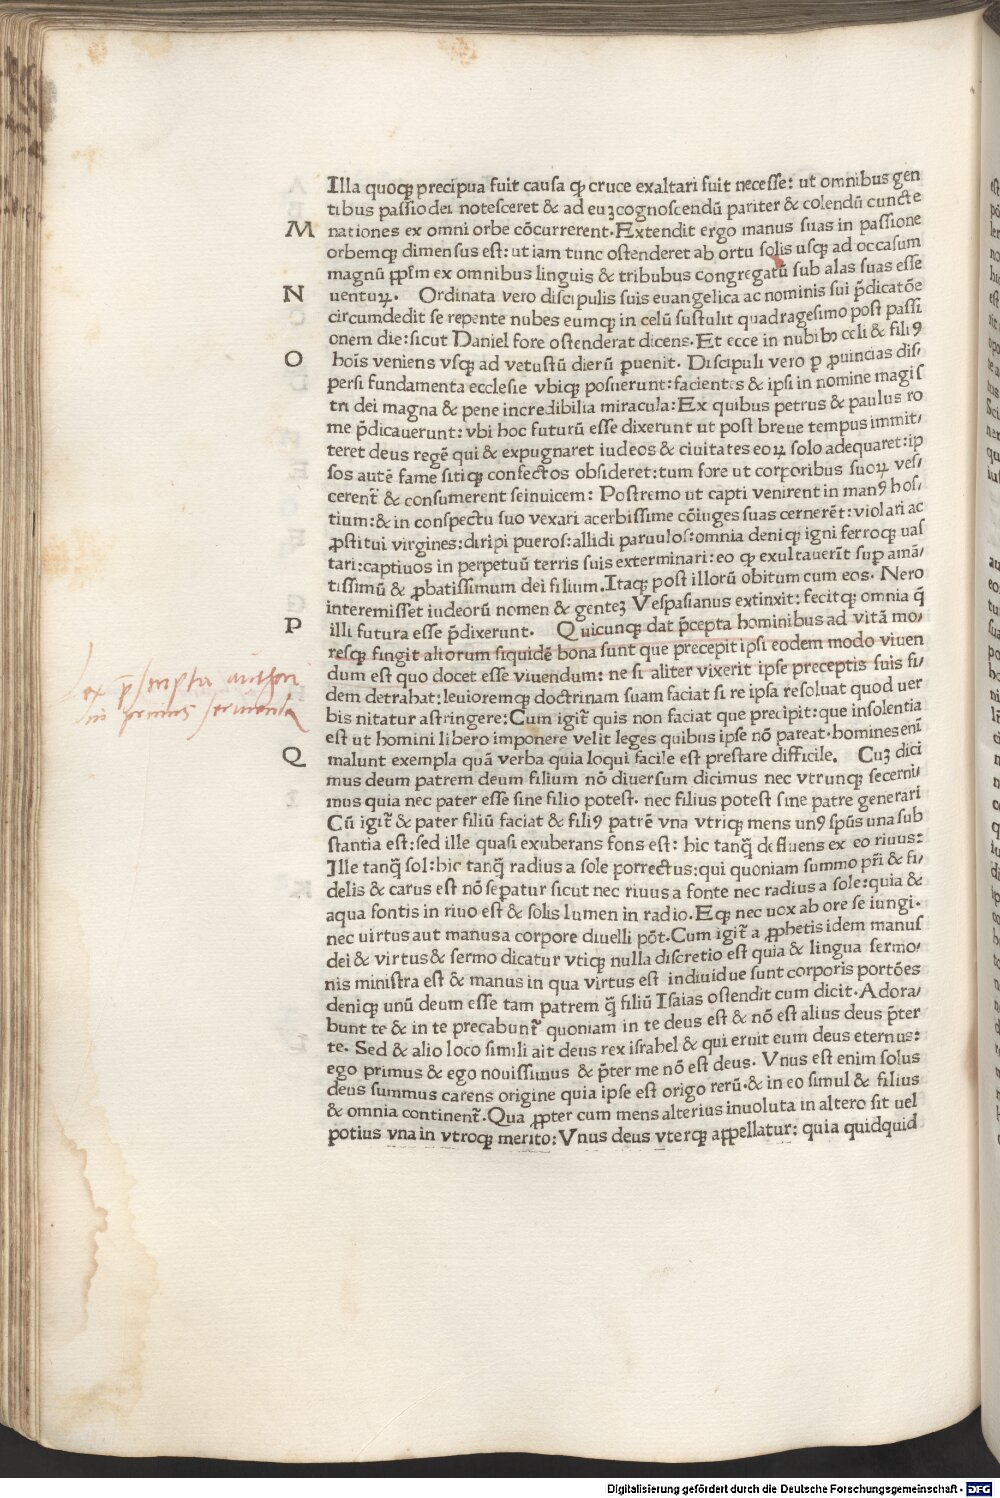 Illa quoqꝫ precipua fuit causa qꝫ cruce exaltari fuit necesse: ut omnibus gen
tibus passio dei notesceret & ad euꝫ cognoscendū pariter & colendū cuncte
M nationes ex omni orbe cōcurrerent. Extendit ergo manus suas in passione
orbemqꝫ dimensus est: ut iam tunc ostenderet ab ortu solis usqꝫ ad occasum
magnū pp̄lm ex omnibus linguis & tribubus congregatū sub alas suas esse
N uentuꝝ. Ordinata vero discipulis suis euangelica ac nominis sui p̄dicatōe
circumdedit se repente nubes eumqꝫ in celū sustulit quadragesimo post passi
onem die: sicut Daniel fore ostenderat dicens. Et ecce in nubibꝫ celi & filiꝰ
O hoīs veniens vsqꝫ ad vetustū dierū ꝑuenit. Discipuli vero ꝑ ꝓuincias dis/
persi fundamenta ecclesie vbiqꝫ posuerunt: facientes & ipsi in nomine magis
tri dei magna & pene incredibilia miracula: Ex quibus petrus & paulus ro
me p̄dicauerunt: vbi hoc futurū esse dixerunt ut post breue tempus immit/
teret deus regē qui & expugnaret iudeos & ciuitates eoꝝ solo adequaret: ip
sos autē fame sitiqꝫ confectos obsideret: tum fore ut corporibus suoꝝ ves/
cerent̄ & consumerent seinuicem: Postremo ut capti venirent in manꝰ hos/
tium: & in conspectu suo vexari acerbissime cōiuges suas cernerēt: violari ac
ꝓstitui virgines: diripi pueros: allidi paruulos: omnia deniqꝫ igni ferroqꝫ uas
tari: captiuos in perpetuū terris suis exterminari: eo qꝫ exultauerīt suꝑ amā/
tissimū & ꝓbatissimum dei filium. Itaqꝫ post illorū obitum cum eos. Nero
interemisset iudeorū nomen & genteꝫ Vespasianus extinxit: fecitqꝫ omnia q̄
P illi futura esse p̄dixerunt. Quicunqꝫ dat p̄cepta hominibus ad vitā mo/
resqꝫ fingit aliorum siquidē bona sunt que precepit ipsi eodem modo viuen
dum est quo docet esse viuendum: ne si aliter vixerit ipse preceptis suis fi/
dem detrahat: leuioremqꝫ doctrinam suam faciat si re ipsa resoluat quod uer
bis nitatur astringere: Cum igit̄ quis non faciat que precipit: que insolentia
est ut homini libero imponere velit leges quibus ipse nō pareat. homines enī
Q malunt exempla quā verba quia loqui facile est prestare difficile. Cuꝫ dici
mus deum patrem deum filium nō diuersum dicimus nec vtrunqꝫ secerni/
mus quia nec pater esse sine filio potest. nec filius potest sine patre generari
Cū igit̄ & pater filiū faciat & filiꝰ patrē vna vtriqꝫ mens unꝰ spūs una sub
stantia est: sed ille quasi exuberans fons est: hic tanq̄ defluens ex eo riuus:
Ille tanq̄ sol: hic tanq̄ radius a sole porrectus: qui quoniam summo pr̄i & fi/
delis & carus est nō seꝑatur sicut nec riuus a fonte nec radius a sole: quia &
aqua fontis in riuo est & solis lumen in radio. Eqꝫ nec uox ab ore seiungi.
nec uirtus aut manus a corpore diuelli pōt. Cum igit̄ a ꝓphetis idem manus
dei & virtus & sermo dicatur vtiqꝫ nulla discretio est quia & lingua sermo/
nis ministra est & manus in qua virtus est indiuidue sunt corporis portōes
deniqꝫ unū deum esse tam patrem q̄ filiū Isaias ostendit cum dicit. Adora/
bunt te & in te precabunt̄ quoniam in te deus est & nō est alius deus p̄ter
te. Sed & alio loco simili ait deus rex israhel & qui eruit eum deus eternus:
ego primus & ego nouissimus & p̄ter me nō est deus. Vnus est enim solus
deus summus carens origine quia ipse est origo rerū. & in eo simul & filius
& omnia continent̄. Qua ꝓpter cum mens alterius inuoluta in altero sit uel
potius vna in vtroqꝫ merito: Vnus deus vterqꝫ appellatur: quia quidquid
Digitalisierung gefördert durch die Deutsche Forschungsgemeinschaft - DFG